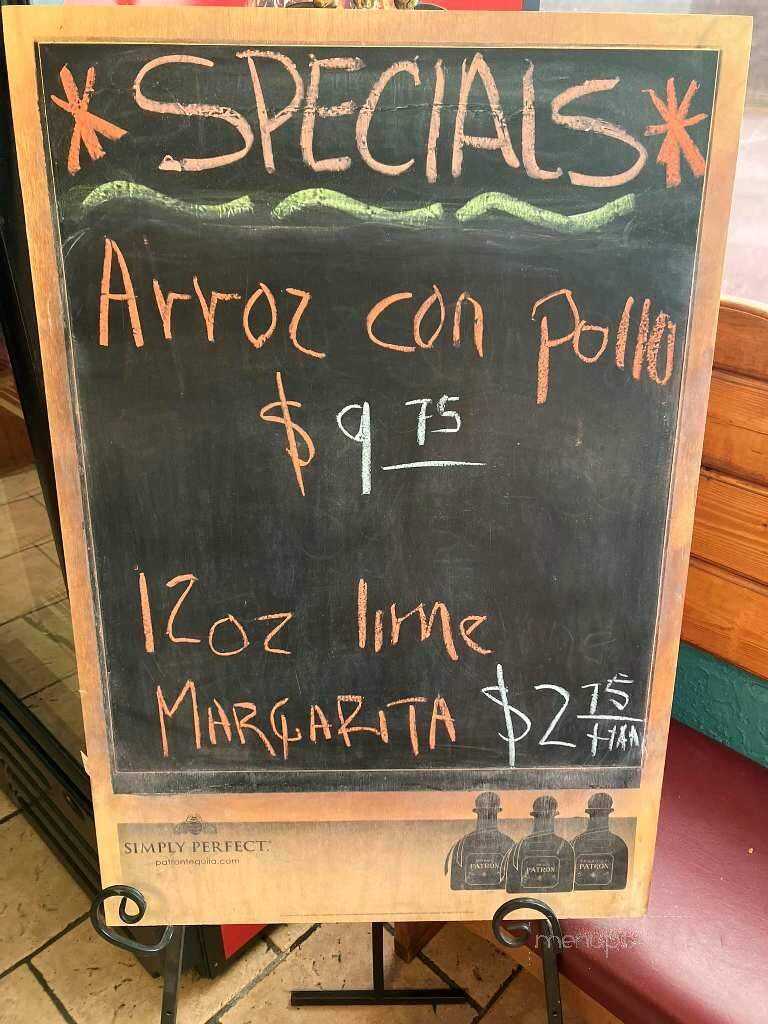 * SPECIALS *
Arroz con Pollo
$9 75
12oz lime
MARGARITA $2 75
+TAX
SIMPLY PERFECT.
patrontequila.com
PATRON PATRON PATRON